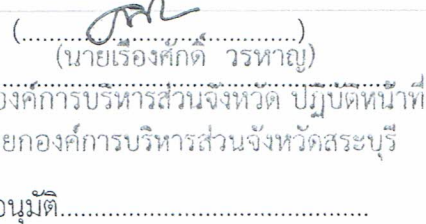 (....................................)
(นายเรืองศักดิ์ วรหาญ)
องค์การบริหารส่วนจังหวัด ปฏิบัติหน้าที่
ยกองค์การบริหารส่วนจังหวัดสระบุรี
อนุมัติ............................................